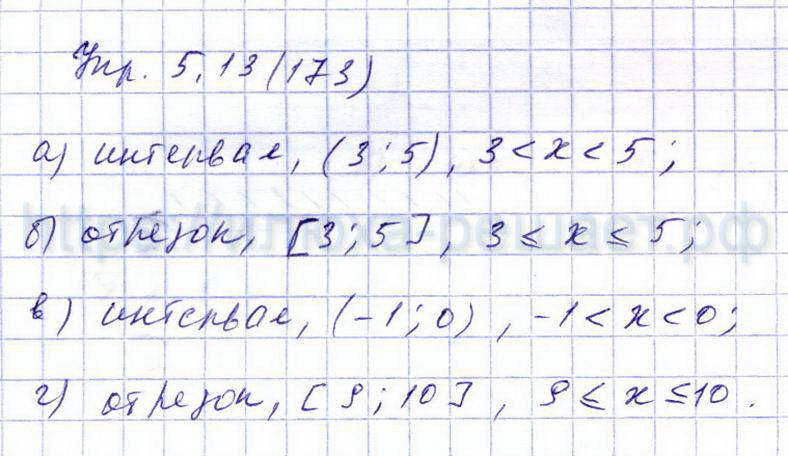 Упр. 5.13 (173)
а) интервал, (3; 5), 3 < x < 5;
https://илюха-решает.рф
б) отрезок, [3; 5], 3 ≤ x ≤ 5;
в) интервал, (-1; 0), -1 < x < 0;
г) отрезок, [9; 10], 9 ≤ x ≤ 10.